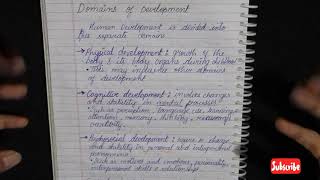 Domains of Development
Human Development is divided into
five separate domains
→ Physical development : growth of the
body & its body organs during childhood
• This may influence other domains
of development
→ Cognitive development : involves changes
and stability in mental processes
• Such as perception, language use, learning
attention, memory, thinking, reasoning
creativity.
→ Psychosocial development :
and stability in personal and
• Such as and emotions, personality,
interpersonal skills & relationships
Subscribe